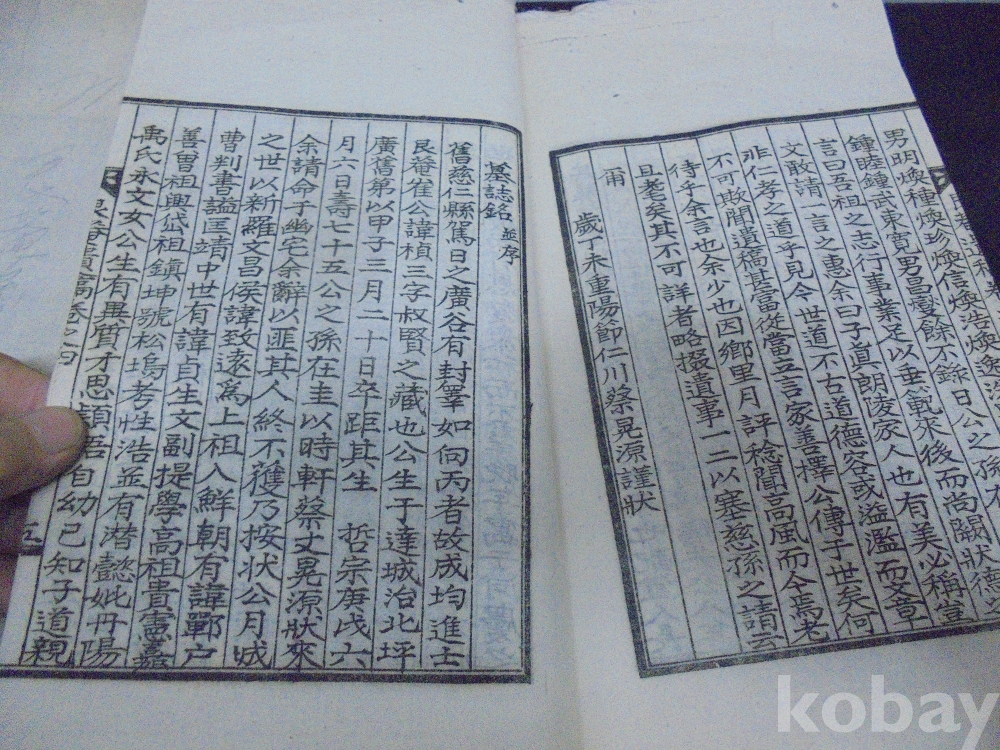 男明煥種煥珍煥信煥浩煥奭浩
鍾睦鍾武東寬男昌燮餘不錄日公之孫
言曰吾祖之志行事業足以垂範來後而尚闕狀德
文敢請一言之惠余曰子眞朗陵家人也有美必稱豈
非仁孝之道乎見今世道不古道德容或溢濫而文章
不可欺聞遺稿甚當從當立言家善擇公傳于世矣何
待乎余言也余少也因鄉里月評稔聞高風而今焉老
且老矣其不可詳者略掇遺事一二以塞慈孫之請云
爾
歲丁未重陽節仁川蔡晃源謹狀
墓誌銘 並序
舊慈仁縣駕日之廣谷有封睪如向丙者故成均進士
艮菴崔公諱楨三字叔賢之藏也公生于達城治北坪
廣舊第以甲子三月二十日卒距其生 哲宗庚戌六
月六日壽七十五公之孫在圭以時軒蔡丈晃源狀來
余請命于幽宅余辭以匪其人終不獲乃按狀公月城
之世以新羅文昌侯諱致遠爲上祖入鮮朝有諱鄲戶
曹判書謚匡靖中世有諱貞生文副提學高祖貴憲嘉
善曾祖興岱祖鎭坤號松塢考性浩並有潜懿妣丹陽
禹氏永文女公生有異質才思穎悟自幼已知子道親
艮菴遺稿卷之四
五
kobay